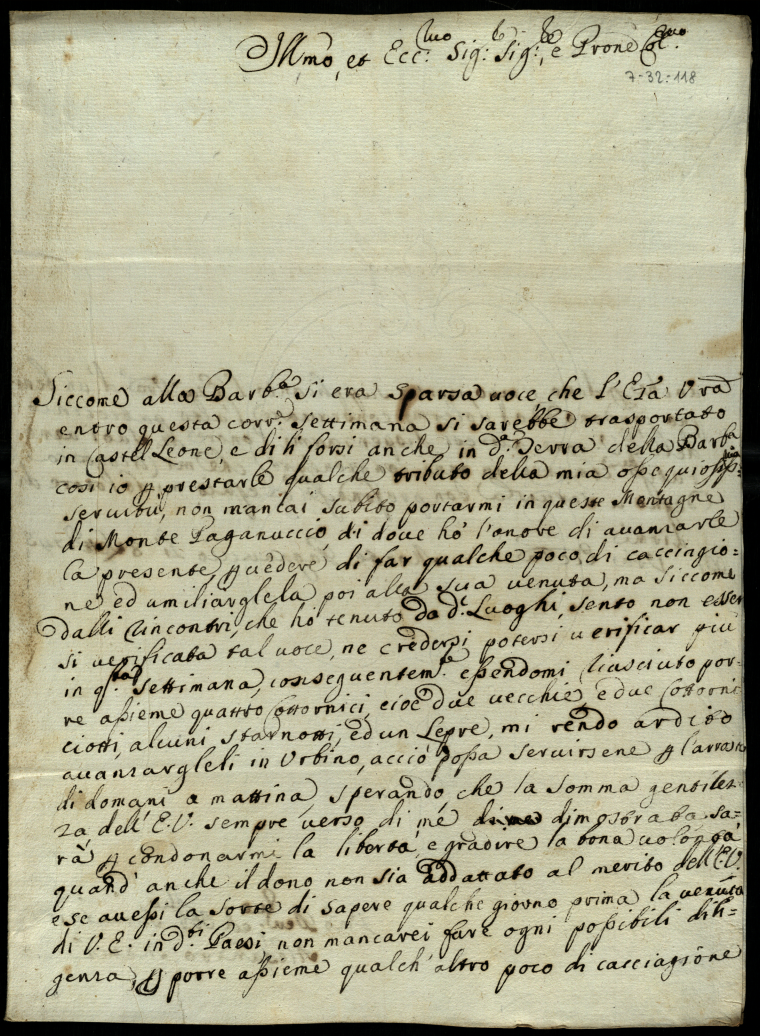 Illmo, et Ecc:mo Sig:r Sig:re, e Prone Col:mo
7-32-118
Siccome alla Barb:a si era sparsa uoce che l'Ecza Vra
entro questa corr:e settimana si sarebbe trasportato
in Castel Leone, e di li forsi anche in d:a Serra della Barba
cosi io p prestarle qualche tributo della mia ossequiosissma
seruitu, non mancai subito portarmi in queste Montagne
di Monte Paganuccio, di doue ho' l'onore di auanzarle
la presente, p uedere di far qualche poco di caccingio=
ne, ed umiliarglela poi alla sua uenuta, ma siccome
dalli rincontri, che ho' tenuto da d:i Luoghi, sento non esser
si uerificata tal uoce, ne credersi potersi uerificar piu
in q:sta settimana, conseguentem:te essendomi riusciuto por=
re assieme quattro Cottornici, cioe due uecchie, e due Cottorni
ciotti, alcuni starnotti, ed un Lepre, mi rendo ardito
auanzargleli in Urbino, acciò possa seruirsene p l'arrosto
di domani a mattina, sperando che la somma gentilez=
za dell'E.V. sempre uerso di mé dimostrata sa=
rà p condonarmi la libertà, e gradire la bona uolontà,
quand' anche il dono non sia addattato al merito dell'E.V.
e se auessi la sorte di sapere qualche giorno prima la uenuta
di V.E. in d:ti Paesi non mancarei fare ogni possibili dili=
genza, p porre assieme qualch' altro poco di cacciagione